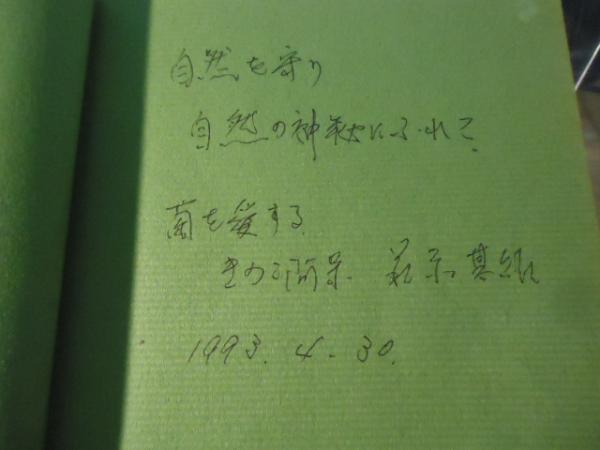 自然を守り
自然の神秘にふれて、
菌を愛する
きのこ阿呆
1993. 4. 30.